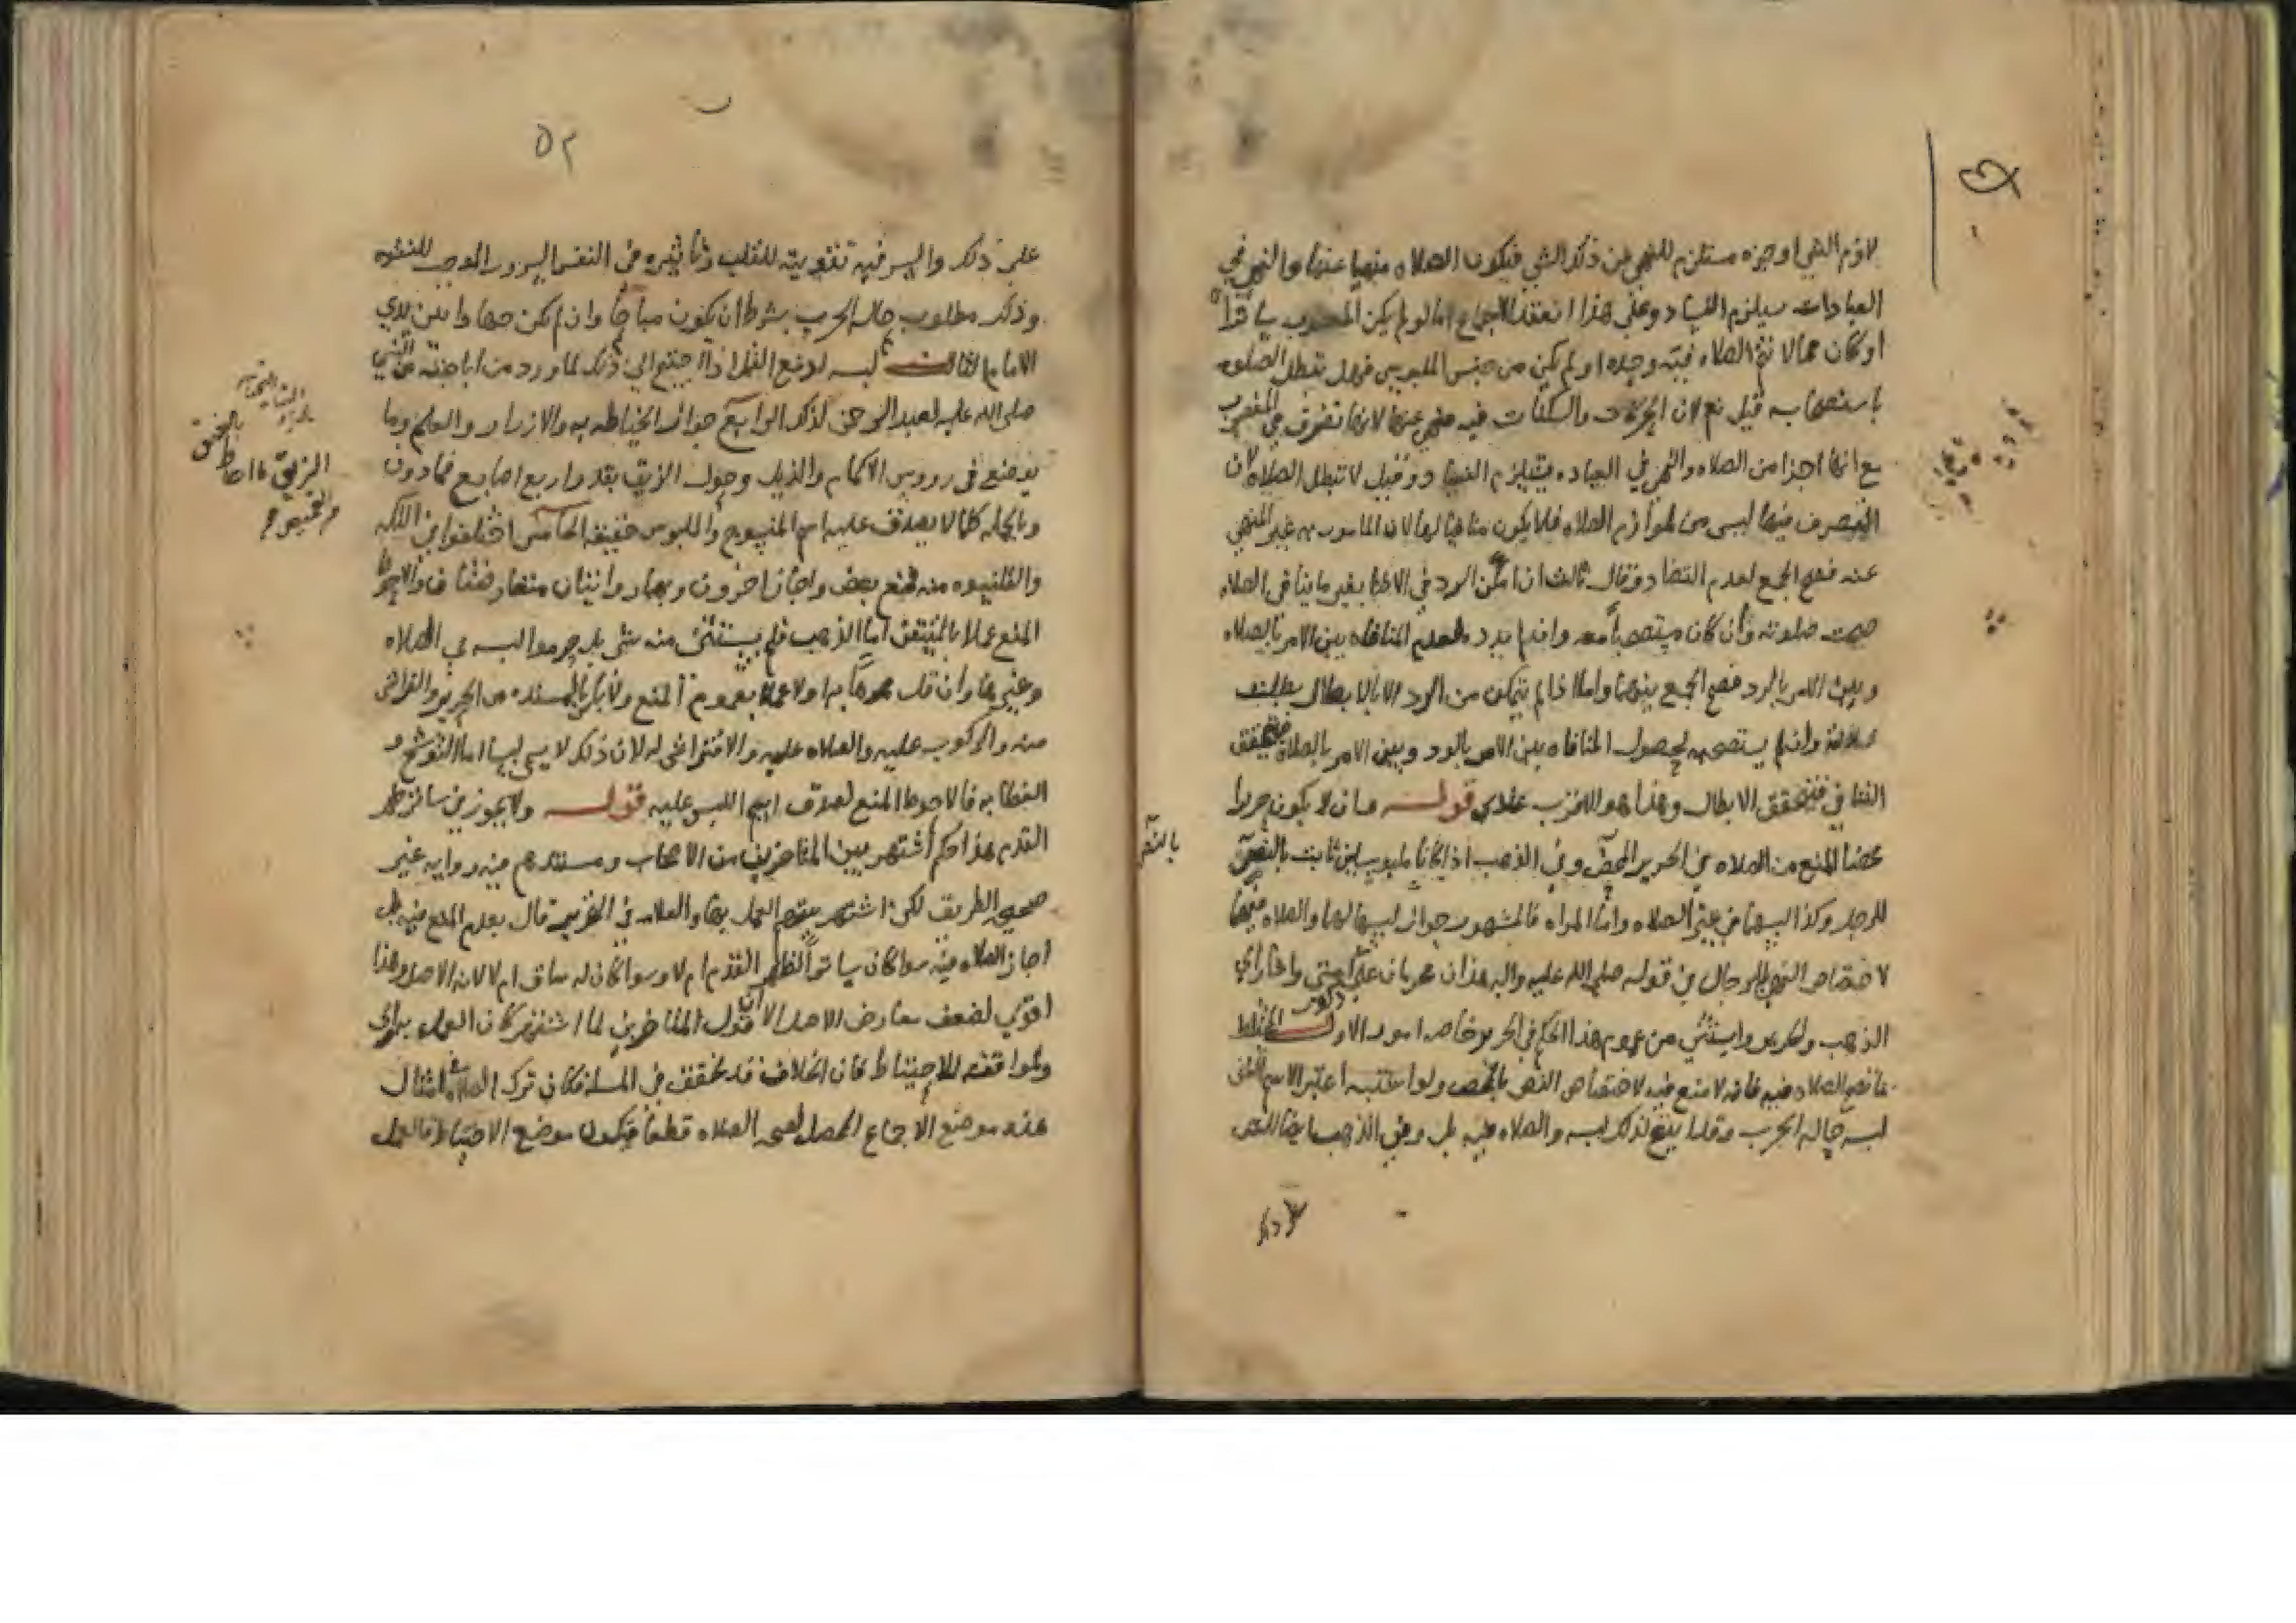 لازم الشي او جزه مستلزم للنهي عن ذلك الشي فيكون الصلاه منهيا عنها والنهي في
العبادات يستلزم الفساد وعلى هذا انعقد الاجماع اما لو لم يكن المغصوب ساترا
او كان مما لا تتم الصلاه فيه وحده او لم يكن من جنس الملبوس فهل تبطل الصلوه
باستصحابه قيل نعم لان الحركات والسكنات فيه منهي عنها لانها تصرف في المغصوب
مع انها اجزا من الصلاه والنهي في العباده يستلزم الفساد وقيل لا تبطل الصلاه لان
التصرف فيها ليس من لوازم الصلاه فلا يكون منافيا لها لان المامور به غير المنهي
عنه فصح الجمع لعدم التضاد وقال ثالث ان امكن الرد في الاثنا بغير ما ينافي الصلاه
صحت صلوته وان كان مستصحبا معه وان لم يرد لعدم المنافاه بين الامر بالصلاه
وبين الامر بالرد فصح الجمع بينهما واما اذا لم يتمكن من الرد الا بابطال بطلت
صلاته وان لم يستصحبه لحصول المنافاه بين الامر بالرد وبين الامر بالصلاه فيتحقق
التنافي فيتحقق الابطال وهذا هو الاقرب عندي قوله وان لا يكون حريرا
محضا المنع من الصلاه في الحرير المحض وفي الذهب اذا كانا ملبوسين ثابت بالنص
للرجل وكذا لبسهما في غير الصلاه واما المراه فالمشهور جواز لبسهما لها والصلاه فيهما
لاختصاص النهي بالرجال في قوله صلى الله عليه واله هذان محرمان على ذكور امتي واشار الى
الذهب والحرير واستثنى من عموم هذا الحكم في الحرير خاصه امور الاول الخليط
فانه الصلاه فيه فانه لا منع فيه لاختصاص النص بالمحض ولو اشتبه اعتبر الاسم الثاني
لبسه حاله الحرب وقد ابيح لذلك لبسه والصلاه فيه بل وفي الذهب ايضا للنص
بالنص
على ذلك والسر فيه تقويته للقلب وتاثيره في النفس السرور الموجب للنشوه
وذلك مطلوب حاله الحرب بشرط ان يكون مباحا وان لم يكن جهادا بين يدي
الامام الثالث لبسه لدفع القمل اذا احتيج الى ذلك لما ورد من اباحته عن النبي
صلى الله عليه لعبد الرحمن لذلك الرابع جواز الخياطه به والازرار والعلم وما
يوضع في رووس الاكمام والذيل وحول الزيق بقدر اربع اصابع فما دون
وبالجمله كلما لا يصدق عليه اسم المنسوج والملبوس حقيقه الخامس اختلفوا في التكه
والقلنسوه منه فمنع بعض واجاز اخرون وبهما روايتان متعارضتان والاحوط
المنع عملا بالمتيقن اما الذهب فلم يستثن منه شي بل حرموا لبسه في الصلاه
وغيرها وان قل مموها به اولا عملا بعموم المنع ولا باس بالمسنده من الحرير والفراش
منه والركوب عليه والصلاه عليه والافتراش له لان ذلك لا يسمى لبسا اما التوشح و
الغطا به فالاحوط المنع لصدق اسم اللبس عليه قوله ولا يجوز في ساتر ظهر
القدم هذا حكم اشتهر بين المتاخرين من الاصحاب ومستندهم فيه روايه غير
صحيحه الطريق لكن اشتهر بينهم العمل بها والعلامه في التحرير قال بعدم المنع فيه بل
اجاز الصلاه فيه سوا كان ساترا لظهر القدم ام لا وسوا كان له ساق ام لا لانه الاصل وهذا
اقوى لضعف معارض الاصل الا ان قول المتاخرين لما اشتهر كان العمل به اولى
ولموافقته للاحتياط فان الخلاف قد تحقق في المسله فكان ترك الصلاه في امثال
هذه موضع الاجماع المحصل لصحه الصلاه قطعا فيكون موضع الاحتياط فالعمل
٥٢